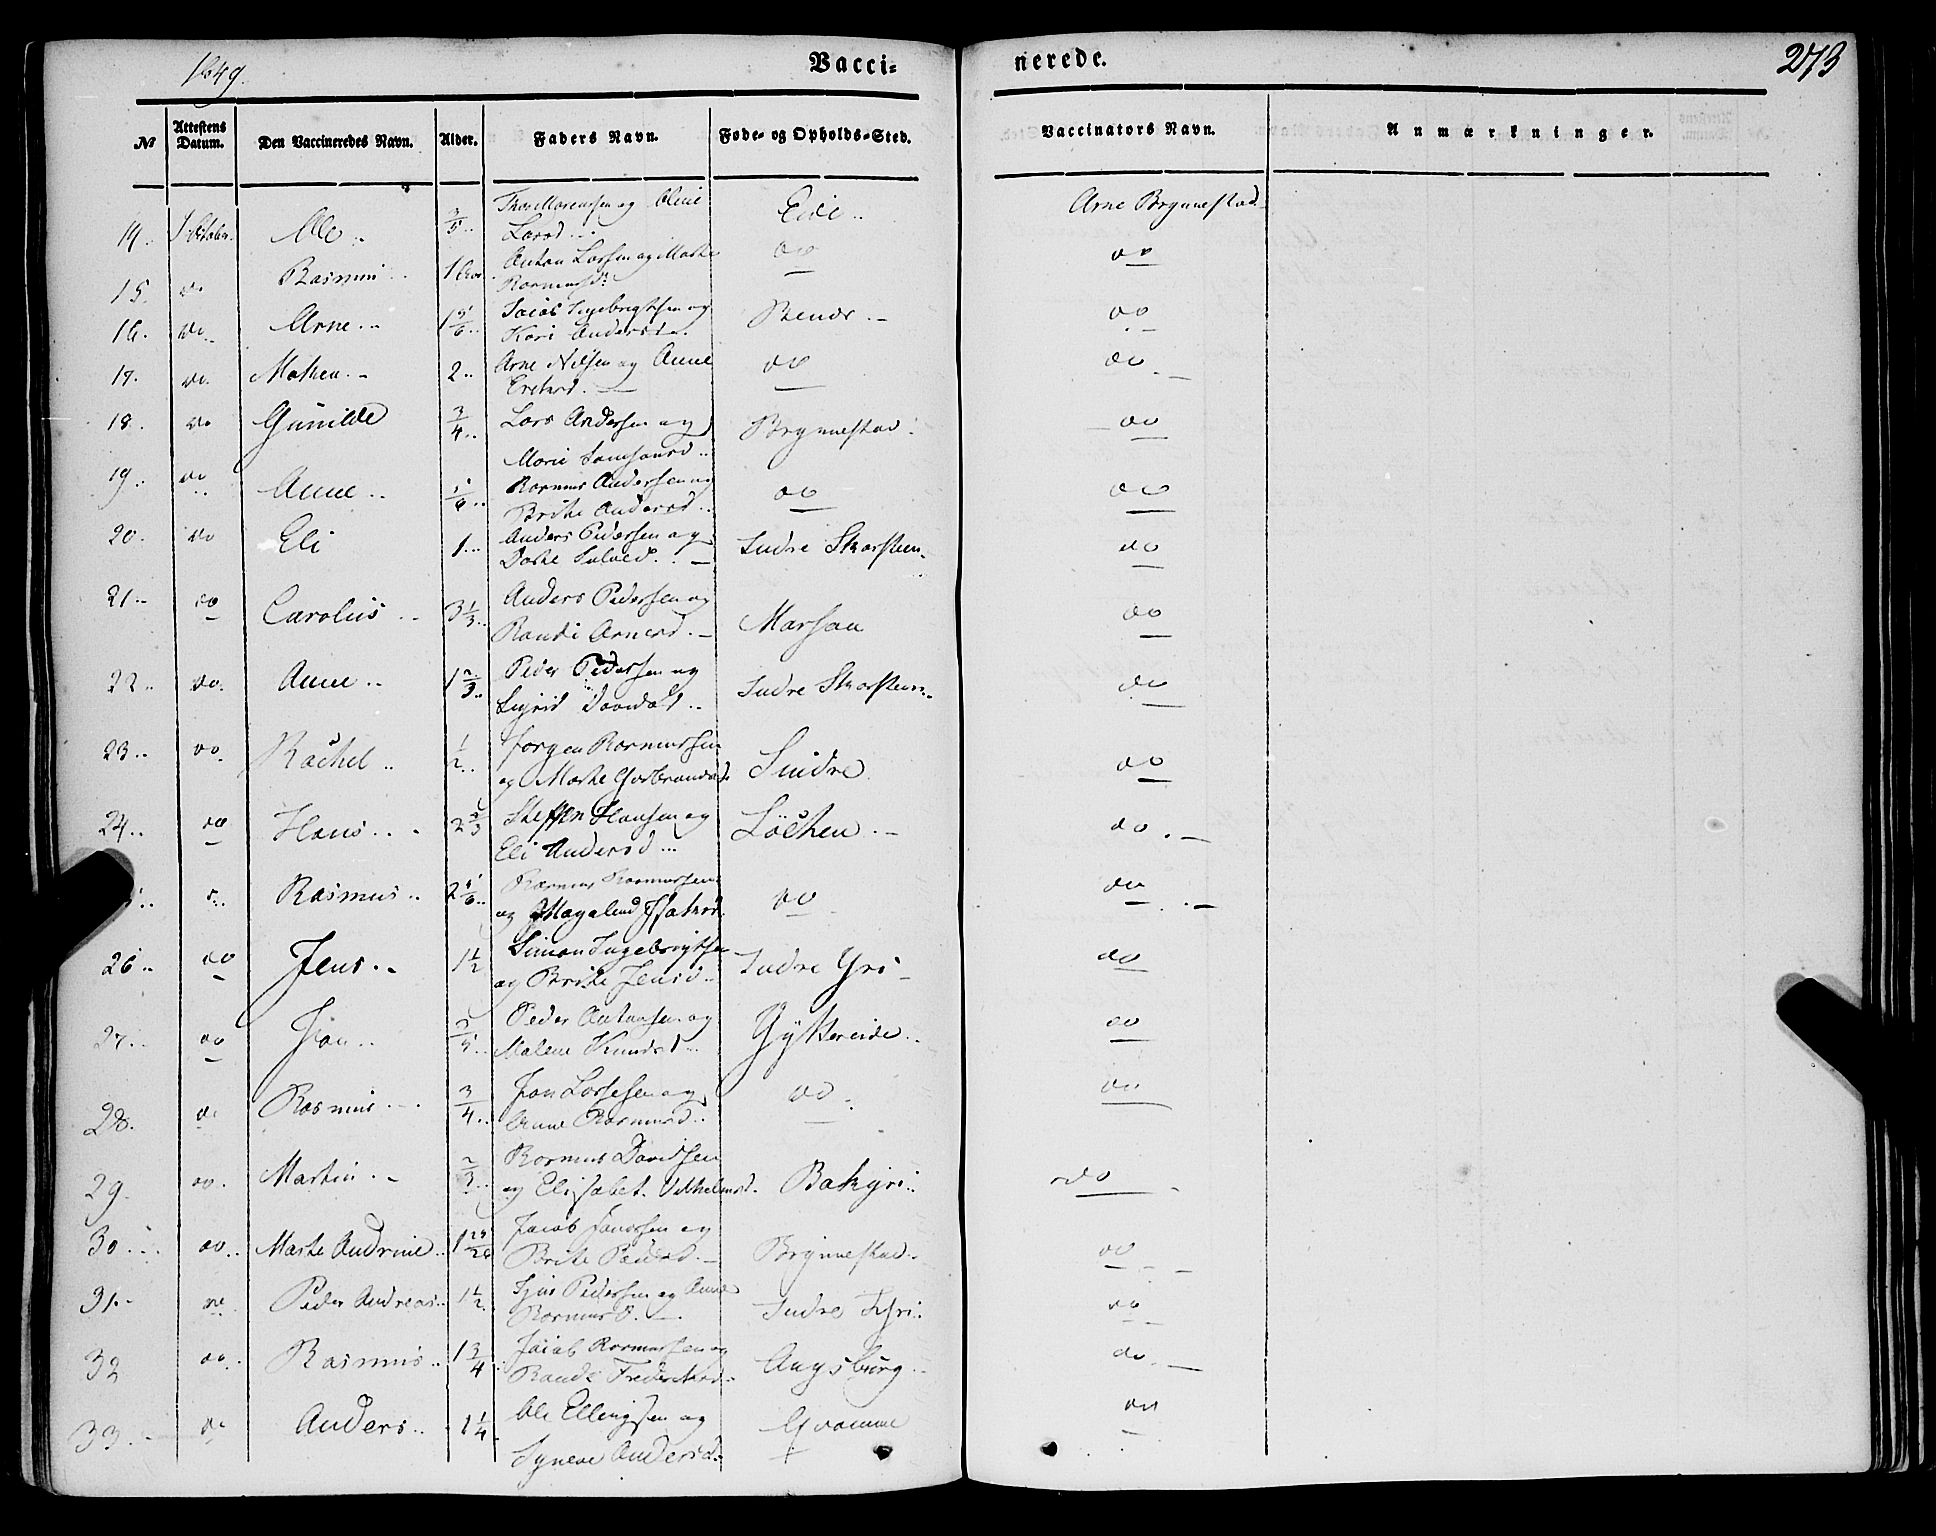 1849.
Vacci- nerede.
273
№ Attestens Datum. Den Vaccineredes Navn. Alder. Faders Navn. Føde- og Opholds-Sted. Vaccinators Navn. Anmærkninger.
14.. October. Ole.. 3/5.. Oline Eide.. Arne Brynnestad
15. do Rasmus.. 1 Anton Larsen og Marthe do do
Rasmusd:
16. do.. Arne.. 1 5/6.. Jacob Ingebrigtsen og Rends.- do
Kari Andersd.
17. do. Mathea.- 2.. Arne Nilsen og Anne do do.-
18. do Gunilde 3/4.. Lars Andersen og Brynnestad. do
Marie Samsonsd..
19.. do.. Anne.. 1/6.. Rasmus Andersen og do do
Brithe Andersd..
20. do Eli 1... Anders Pedersen og Indre Skarsteen. do
Dorthe
21.. do Carolus.. 3 1/3.. Anders Pedersen og Marsaa do
Randi Arnesd.-
22.. do. Anne.. 1 2/3.. Peder Pedersen og Indre Skarsteen.. do
Sigrid Davidsd..
23.. do. Rachel.. 1/2.. Jørgen Rasmussen Sindre do
og Marthe Gudbrandsd
24.. do Hans... 2 2/3 Steffen Hansen og Löchen.- do.-
Eli Andersd...
Rasmus.. 2 1/6.. Rasmus Rasmussen do do.-
og Magalend
26.. do Jens.- 1 1/2 Simon Ingebrigtsen Indre Gri- do
og Brithe Jensd..
27.. do Jon.. 2/5.. Peder Antonsen og Gytkereide.. do
Malene Knudsd..
28. do Rasmus.-. 3/4.. Jon Lassesen og do. do
Anne Rasmusd..
29. do. Martin.- 2/3.. Rasmus Davidsen do-
og Elisabet Vilhelmsd. Bakgri..
30... do.. Marthe Andrine.. 1 25/26 Jacob Jonassen og Brynnestad.. do--
Brithe Pedersd.-
31.- do. Peder Andreas.. 1 1/2. Pedersen og Anne Indre Gri. do
Rasmusd.-
32 do. Rasmus.. 1 3/4 Jacob Rasmussen og Augsburg.. do.-
Randi Frederiksd..
33.. do Anders.. 1 1/4 Ole Ellingsen og Qvamme do
Synneve Andersd..